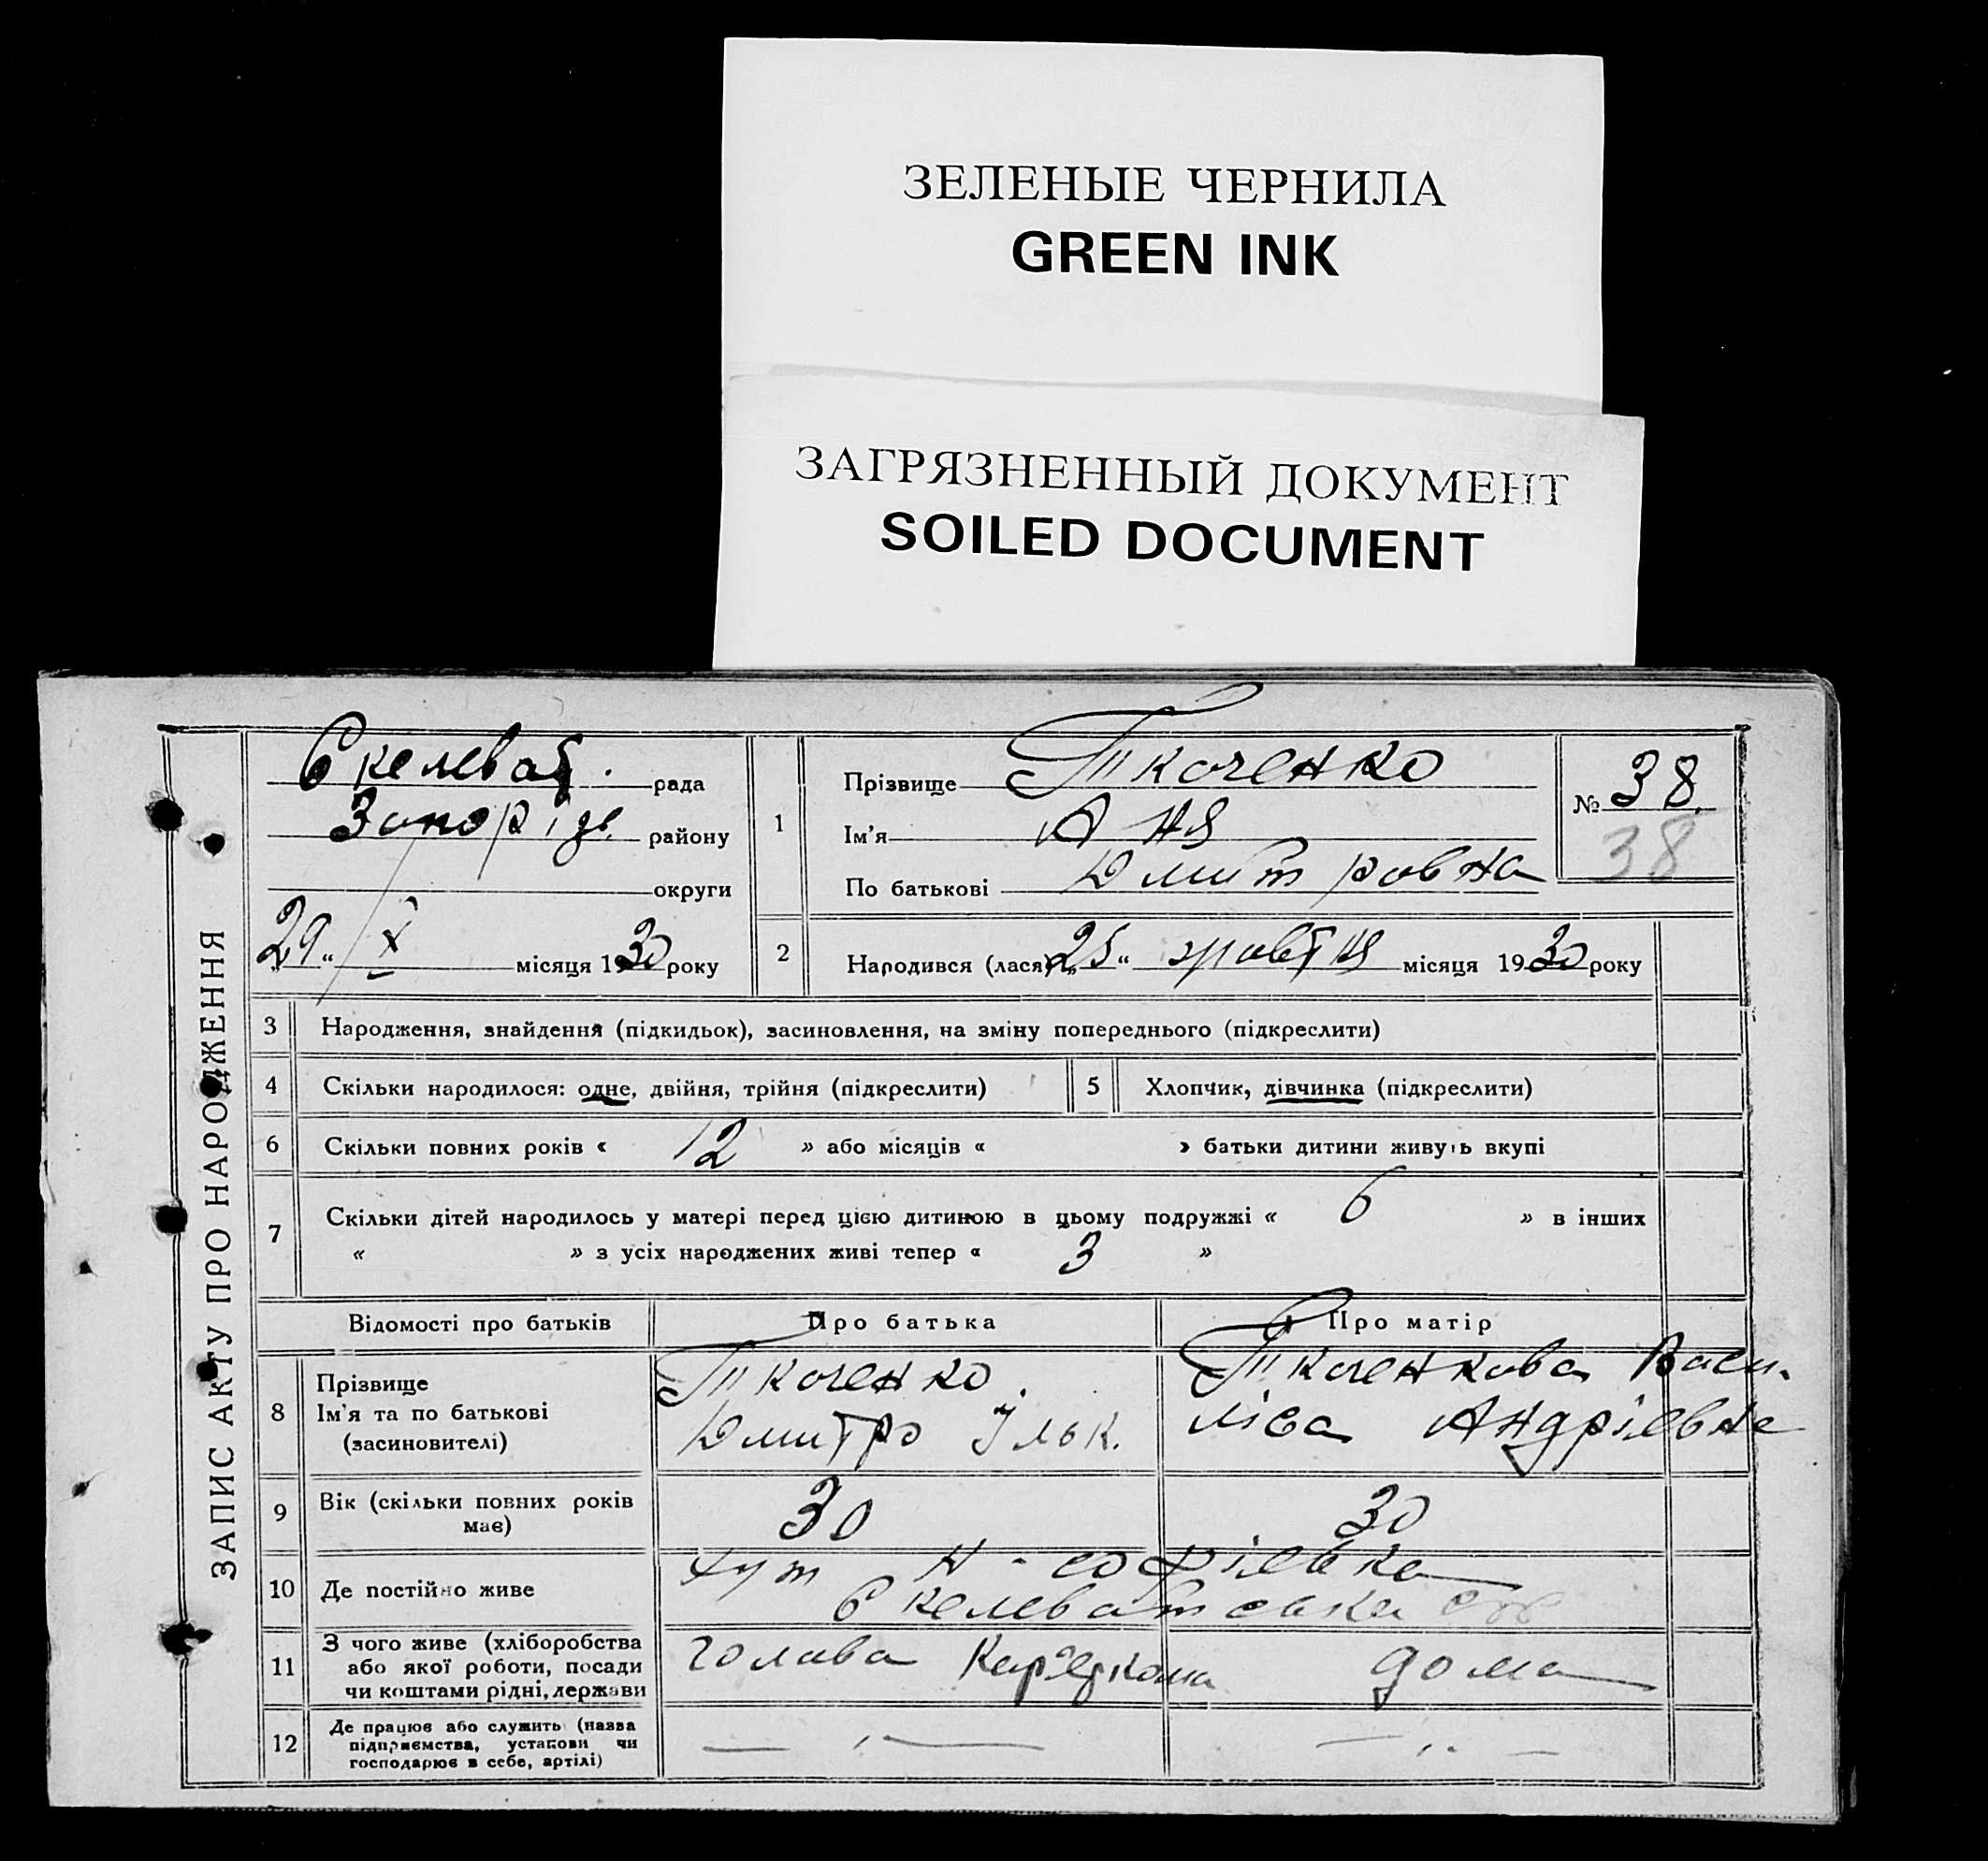 ЗЕЛЕНЫЕ ЧЕРНИЛА
GREEN INK
ЗАГРЯЗНЕННЫЙ ДОКУМЕНТ
SOILED DOCUMENT
ЗАПИС АКТУ ПРО НАРОДЖЕННЯ
Скелеват. рада
Запоріз. району
округи
„29“ X місяця 1930 року
1
Прізвище Ткаченко
Ім'я Аня
По батькові Дмитровна
№ 38
38
2
Народився (лася) „25“ місяця 1930 року
3 Народження, знайдення (підкидьок), засиновлення, на зміну попереднього (підкреслити)
4 Скільки народилося: одне, двійня, трійня (підкреслити)
5 Хлопчик, дівчинка (підкреслити)
6 Скільки повних років « 12 » або місяців « » батьки дитини живуть вкупі
7 Скільки дітей народилось у матері перед цією дитиною в цьому подружжі « 6 » в інших
« » з усіх народжених живі тепер « 3 »
Відомості про батьків Про батька Про матір
8 Прізвище
Ім'я та по батькові
(засиновителі)
Ткаченко
Дмитро Ільк.
Ткаченкова Васи-
ліса Андріївна
9 Вік (скільки повних років
має)
30
30
10 Де постійно живе
хут Н-софіївка
Скелеватська
11 З чого живе (хліборобства
або якої роботи, посади
чи коштами рідні, держави
голова
дома
12 Де працює або служить (назва
підприємства, установи чи
господарює в себе, артілі)